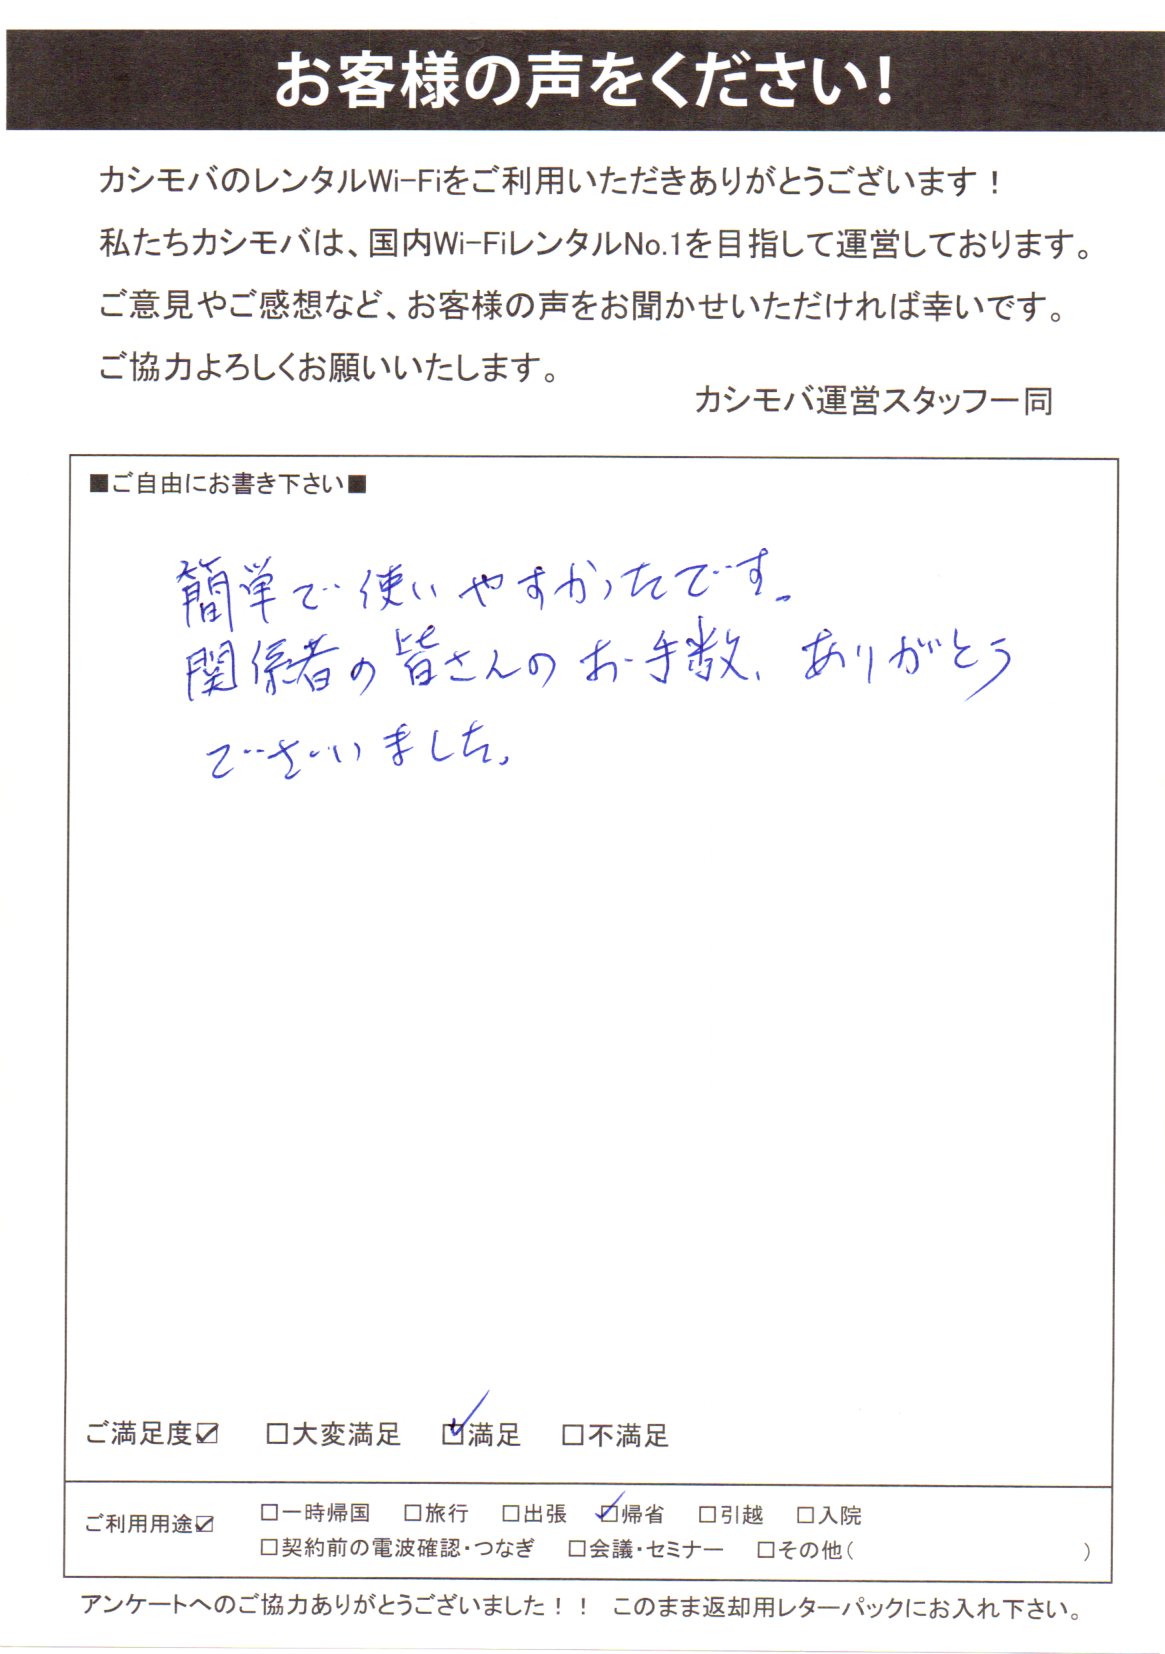 お客様の声をください！
カシモバのレンタルWi-Fiをご利用いただきありがとうございます！
私たちカシモバは、国内Wi-FiレンタルNo.1を目指して運営しております。
ご意見やご感想など、お客様の声をお聞かせいただければ幸いです。
ご協力よろしくお願いいたします。
カシモバ運営スタッフ一同
■ご自由にお書き下さい■
簡単で使いやすかったです。
関係者の皆さんのお手数、ありがとう
ございました。
ご満足度☑ □大変満足 ☑満足 □不満足
ご利用用途☑ □一時帰国 □旅行 □出張 ☑帰省 □引越 □入院
□契約前の電波確認・つなぎ □会議・セミナー □その他（ ）
アンケートへのご協力ありがとうございました！！ このまま返却用レターパックにお入れ下さい。